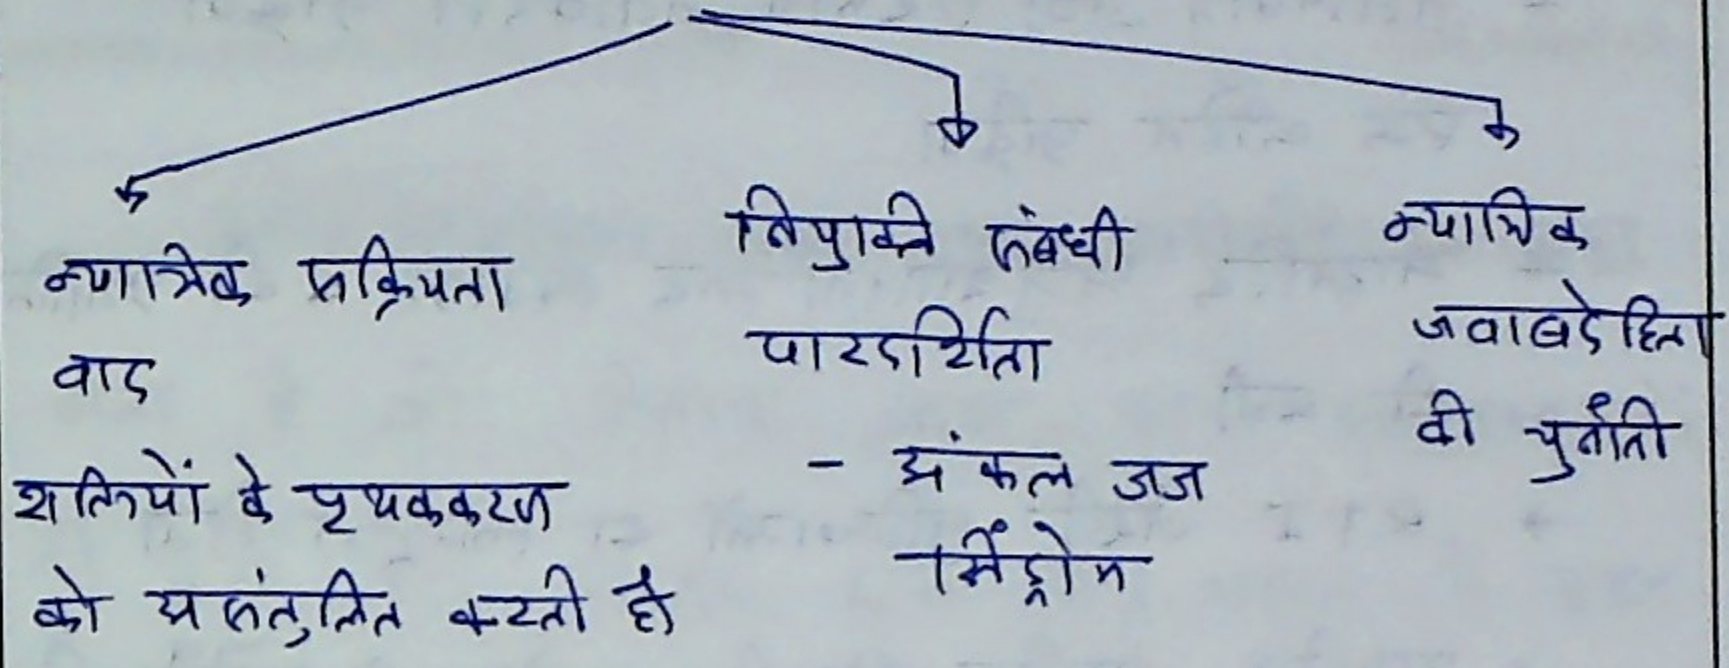 न्यायिक सक्रियता
वाद
शक्तियों के पृथककरण
को असंतुलित करती है
नियुक्ति संबंधी
पारदर्शिता
- अंकल जज
सिंड्रोम
न्यायिक
जवाबदेहिता
की चुनौती